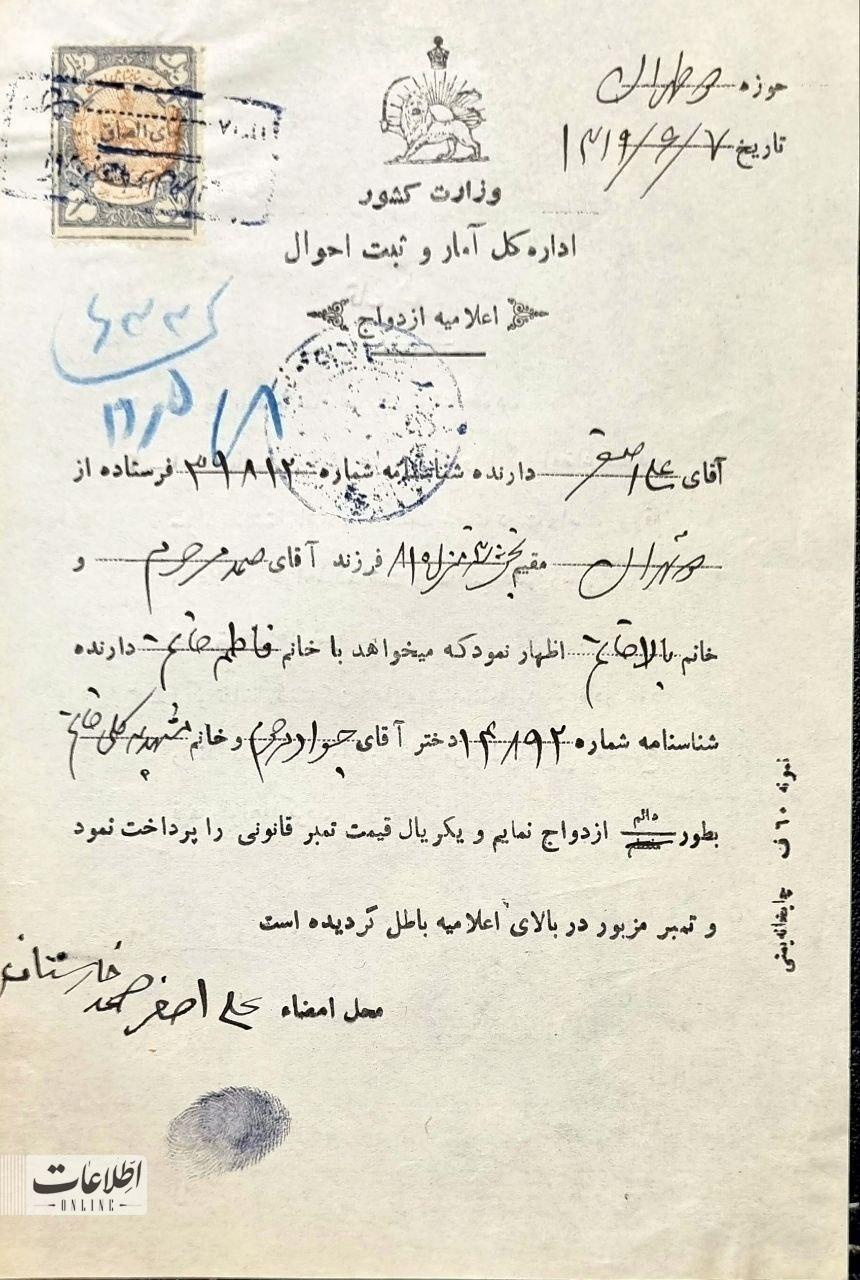 حوزه ۲ طهران
تاریخ ۱۳۱۹/۹/۷
وزارت کشور
اداره کل آمار و ثبت احوال
اعلامیه ازدواج
آقای علی اصغر دارنده شناسنامه شماره ۳۹۸۱۲ فرستاده از
۲ تهران مقیم بخش ۳ فرزند آقای صمد مرحوم و
خانم بالا خانم اظهار نمود که میخواهد با خانم فاطمه خانم دارنده
شناسنامه شماره ۱۴۸۹۲ دختر آقای جواد مرحوم و خانم مشهدیه گلی خانم
بطور دائم منقطع ازدواج نمایم و یکریال قیمت تمبر قانونی را پرداخت نمود
و تمبر مزبور در بالای اعلامیه باطل گردیده است
محل امضاء علی اصغر صمد
نمونه ۶۰ ف چاپخانه بهمنی
اطلاعات
ONLINE